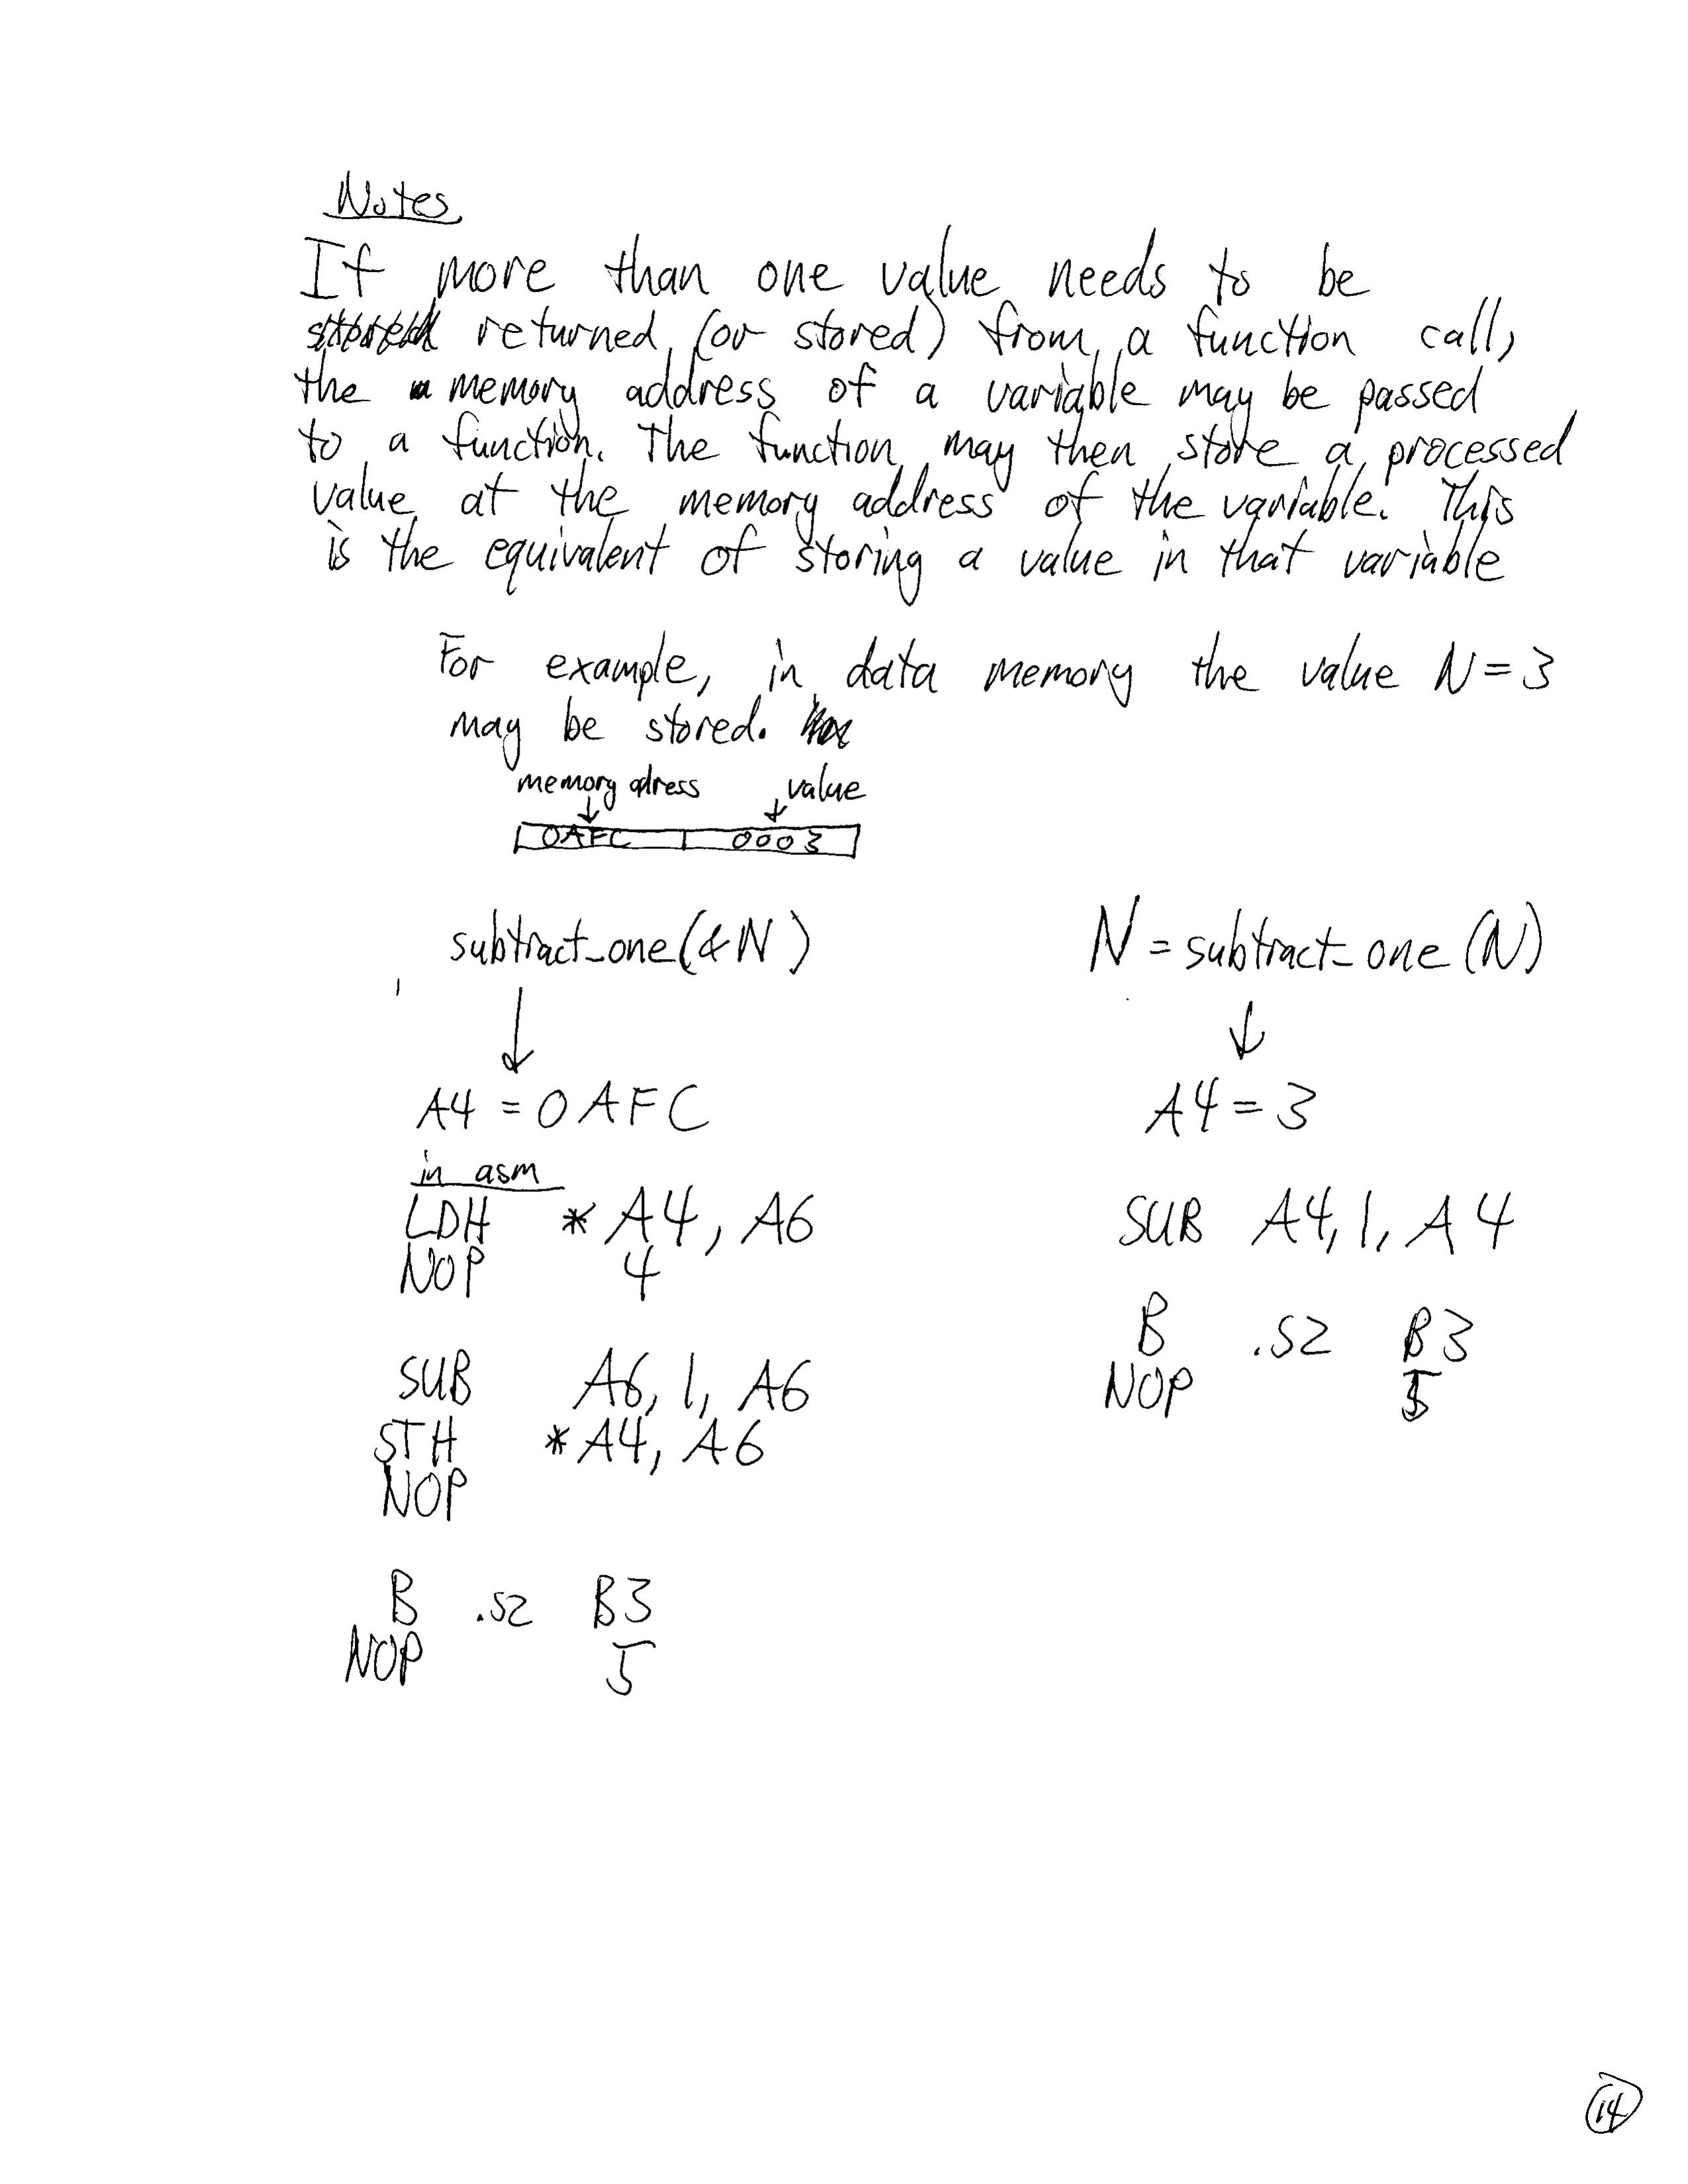 Notes
If more than one value needs to be
stored returned (or stored) from a function call,
the memory address of a variable may be passed
to a function. The function may then store a processed
value at the memory address of the variable. This
is the equivalent of storing a value in that variable
For example, in data memory the value N = 3
may be stored.
memory adress value
0AFC 0003
subtract_one(&N)
A4 = 0AFC
in asm
LDH *A4, A6
NOP 4
SUB A6, 1, A6
STH *A4, A6
NOP
B .S2 B3
NOP 5
N = subtract_one(N)
A4 = 3
SUB A4, 1, A4
B .S2 B3
NOP 5
14